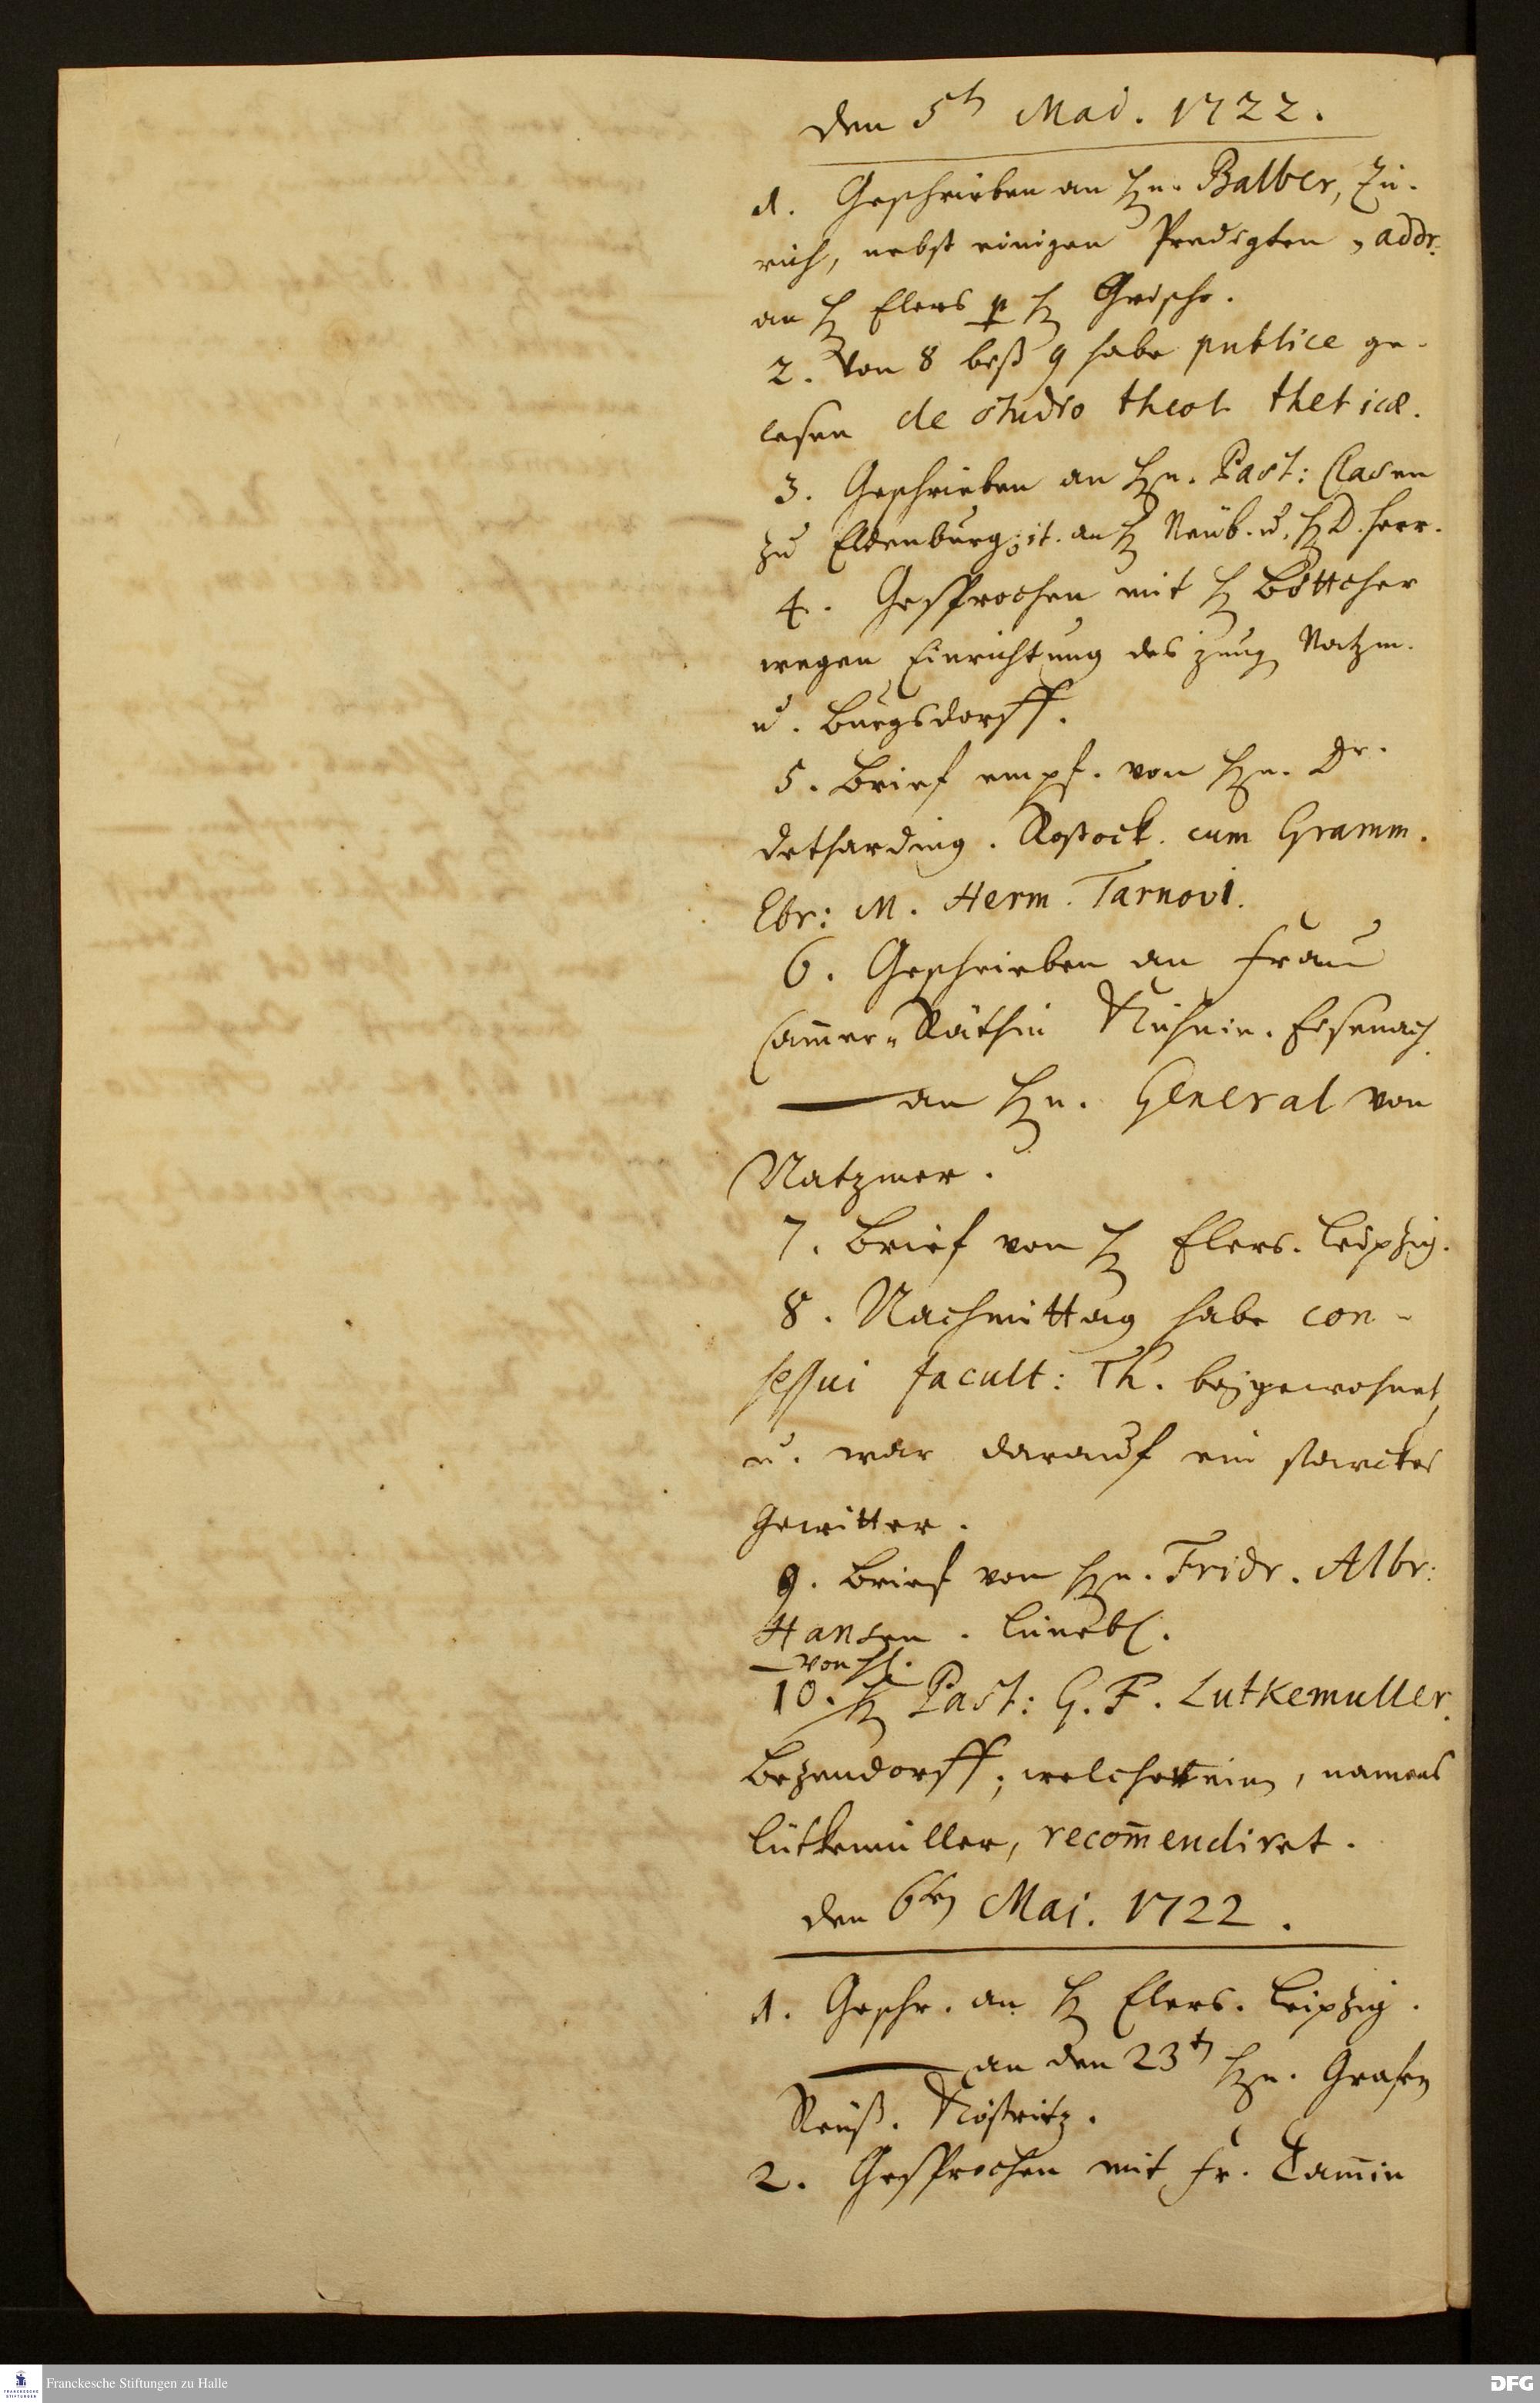 den 5t Maj. 1722.
1. Geschrieben an Hn. Balber, Zü-
rich, nebst einigen Predigten, addr.
an H Elers p H Grischo.
2. Von 8 biß 9 habe publice ge-
lesen de studio theol. theticæ.
3. Geschrieben an Hn. Past: Clasen
zu Eldenburg; it. an H Neub. u. H D. Herr.
4. Gesprochen mit H Böttcher
wegen Einrichtung des jung Natzm.
u. Burgsdorff.
5. Brief empf. von Hn. Dr.
Detharding. Rostock. cum Gramm.
Ebr: M. Herm. Tarnovi.
6. Geschrieben an Frau
Cam̄er-Räthin . Eisenach.
— an Hn. General von
Natzmer.
7. Brief von H Elers. Leipzig.
8. Nachmittag habe con-
sessui facult: Th. beygewohnet,
u. war darauf ein starckes
Gewitter.
9. Brief von Hn. Fridr. Albr:
Hansen. Lüneb.
— von H.
10. H Past: G. F. Lutkemuller.
Bezendorff; welcher einen, namens
Lütkemüller, recom̄endiret.
den 6ten Maj. 1722.
1. Geschr. an H Elers. Leipzig.
— an den 23t Hn. Grafen
Reuß. Köstritz.
2. Gesprochen mit Fr.